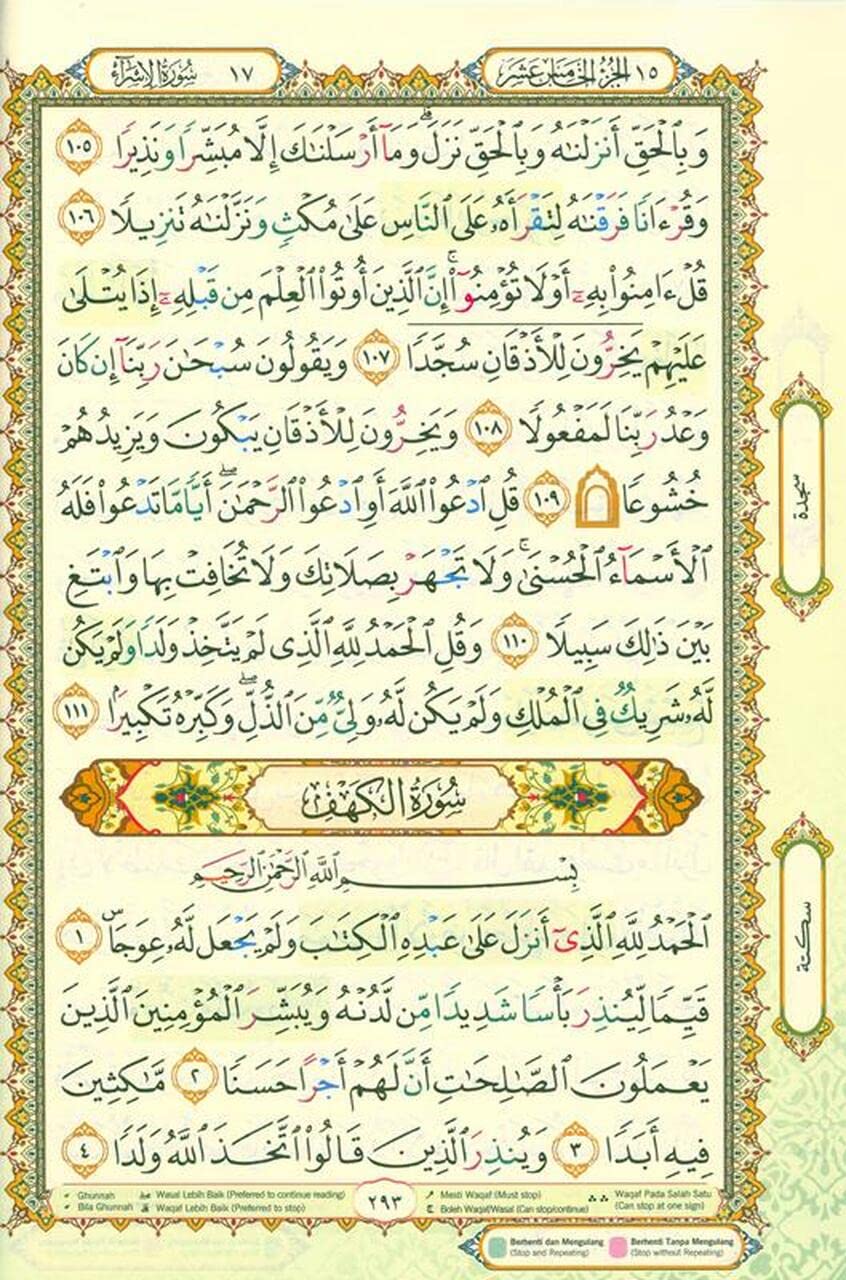 ١٥ الجزء الخامس عشر
سورة الإسراء ١٧
وَبِالْحَقِّ أَنزَلْنَاهُ وَبِالْحَقِّ نَزَلَ ۗ وَمَا أَرْسَلْنَاكَ إِلَّا مُبَشِّرًا وَنَذِيرًا ١٠٥
وَقُرْءَانًا فَرَقْنَاهُ لِتَقْرَأَهُۥ عَلَى ٱلنَّاسِ عَلَىٰ مُكْثٍ وَنَزَّلْنَاهُ تَنزِيلًا ١٠٦
قُلْ ءَامِنُوا۟ بِهِۦٓ أَوْ لَا تُؤْمِنُوٓا۟ ۚ إِنَّ ٱلَّذِينَ أُوتُوا۟ ٱلْعِلْمَ مِن قَبْلِهِۦٓ إِذَا يُتْلَىٰ
عَلَيْهِمْ يَخِرُّونَ لِلْأَذْقَانِ سُجَّدًا ١٠٧ وَيَقُولُونَ سُبْحَٰنَ رَبِّنَآ إِن كَانَ
وَعْدُ رَبِّنَا لَمَفْعُولًا ١٠٨ وَيَخِرُّونَ لِلْأَذْقَانِ يَبْكُونَ وَيَزِيدُهُمْ
خُشُوعًا ١٠٩ قُلِ ٱدْعُوا۟ ٱللَّهَ أَوِ ٱدْعُوا۟ ٱلرَّحْمَٰنَ ۖ أَيًّا مَّا تَدْعُوا۟ فَلَهُ
ٱلْأَسْمَآءُ ٱلْحُسْنَىٰ ۚ وَلَا تَجْهَرْ بِصَلَاتِكَ وَلَا تُخَافِتْ بِهَا وَٱبْتَغِ
بَيْنَ ذَٰلِكَ سَبِيلًا ١١٠ وَقُلِ ٱلْحَمْدُ لِلَّهِ ٱلَّذِى لَمْ يَتَّخِذْ وَلَدًا وَلَمْ يَكُن
لَّهُۥ شَرِيكٌ فِى ٱلْمُلْكِ وَلَمْ يَكُن لَّهُۥ وَلِىٌّ مِّنَ ٱلذُّلِّ ۖ وَكَبِّرْهُ تَكْبِيرًا ١١١
سجدة
سورة الكهف
بِسْمِ ٱللَّهِ ٱلرَّحْمَٰنِ ٱلرَّحِيمِ
ٱلْحَمْدُ لِلَّهِ ٱلَّذِىٓ أَنزَلَ عَلَىٰ عَبْدِهِ ٱلْكِتَٰبَ وَلَمْ يَجْعَل لَّهُۥ عِوَجَا ۜ ١
قَيِّمًا لِّيُنذِرَ بَأْسًا شَدِيدًا مِّن لَّدُنْهُ وَيُبَشِّرَ ٱلْمُؤْمِنِينَ ٱلَّذِينَ
يَعْمَلُونَ ٱلصَّٰلِحَٰتِ أَنَّ لَهُمْ أَجْرًا حَسَنًا ٢ مَّٰكِثِينَ
فِيهِ أَبَدًا ٣ وَيُنذِرَ ٱلَّذِينَ قَالُوا۟ ٱتَّخَذَ ٱللَّهُ وَلَدًا ٤
سكتة
Ghunnah
Bila Ghunnah
صلى Wasal Lebih Baik (Preferred to continue reading)
قلى Waqaf Lebih Baik (Preferred to stop)
٢٩٣
م Mesti Waqaf (Must stop)
ج Boleh Waqaf/Wasal (Can stop/continue)
∴ ∴ Waqaf Pada Salah Satu
(Can stop at one sign)
Berhenti dan Mengulang
(Stop and Repeating)
Berhenti Tanpa Mengulang
(Stop without Repeating)